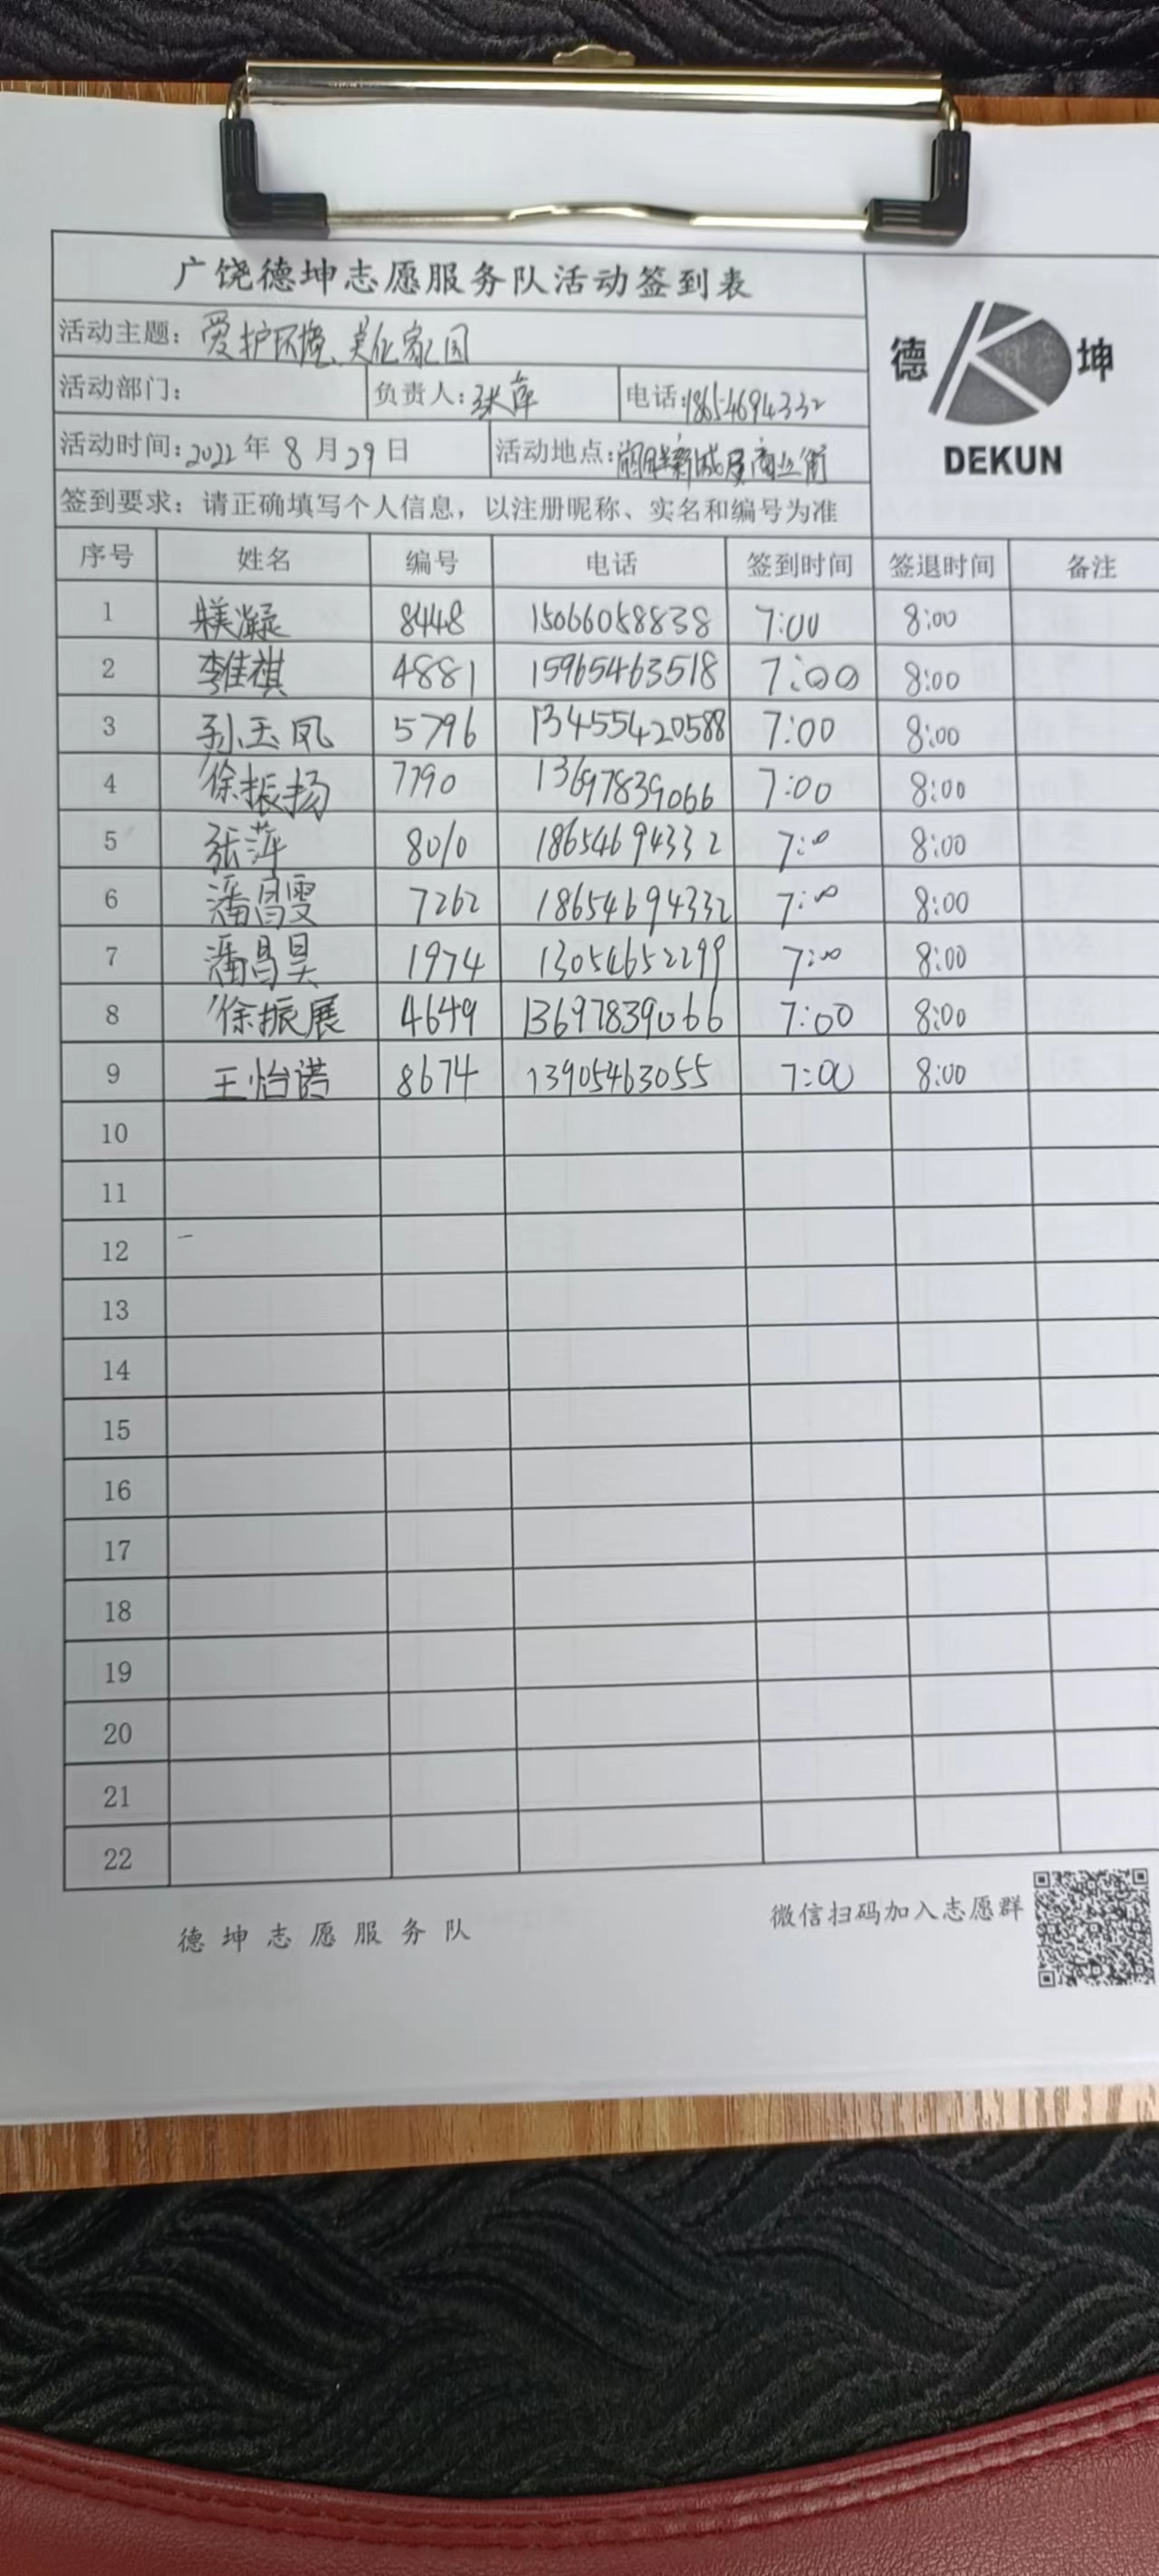 广饶德坤志愿服务队活动签到表
德 坤
DEKUN
活动主题：爱护环境、美化家园
活动部门： 负责人：张萍 电话：18654694332
活动时间：2022年 8月29日 活动地点：新城 商业街
签到要求：请正确填写个人信息，以注册昵称、实名和编号为准
序号 姓名 编号 电话 签到时间 签退时间 备注
1 凝 8448 15066058838 7:00 8:00
2 李佳祺 4881 15965463518 7:00 8:00
3 孙玉凤 5796 13455420588 7:00 8:00
4 徐振扬 7790 13697839066 7:00 8:00
5 张萍 8010 18654694332 7:00 8:00
6 潘昌雯 7262 18654694332 7:00 8:00
7 潘昌昊 1974 13054652299 7:00 8:00
8 徐振展 4649 13697839066 7:00 8:00
9 王怡诺 8674 13905463055 7:00 8:00
10
11
12
13
14
15
16
17
18
19
20
21
22
德坤志愿服务队 微信扫码加入志愿群